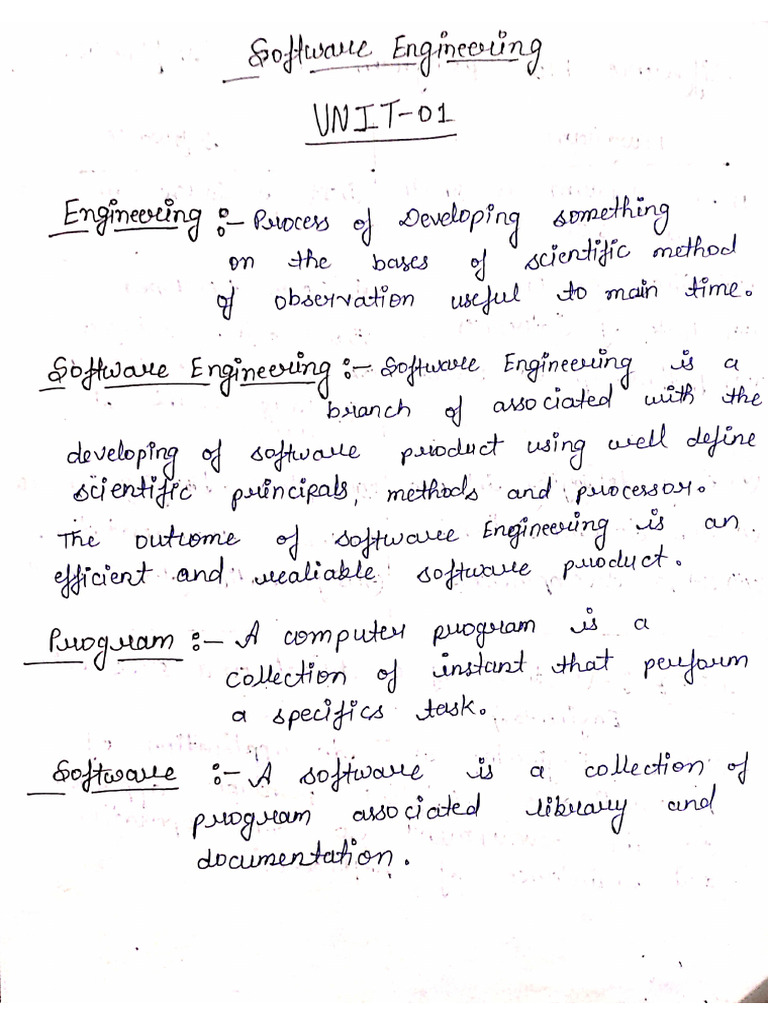 Software Engineering
UNIT-01
Engineering :- Process of Developing something
on the bases of scientific method
of observation useful to main time.
Software Engineering :- Software Engineering is a
branch of associated with the
developing of software product using well define
scientific principals, methods and processor.
The outcome of software Engineering is an
efficient and realiable software product.
Program :- A computer program is a
collection of instant that perform
a specifics task.
Software :- A software is a collection of
program associated library and
documentation.